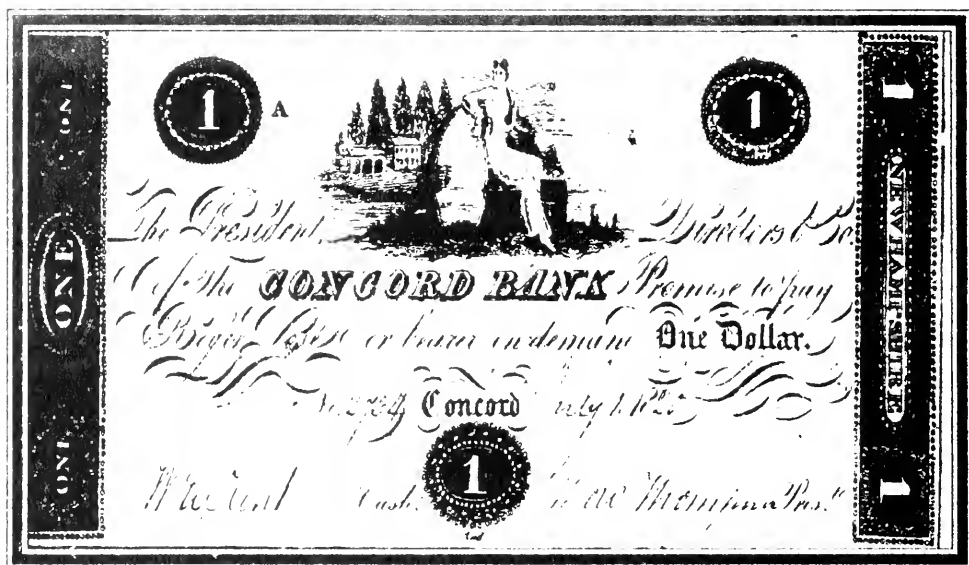 ONE ONE ONE
1 A 1
The President, Directors & Co.
Of the CONCORD BANK Promise to pay
or bearer on demand One Dollar.
No. Concord July 1, 
1
Cash. Pres.t
1 NEW HAMPSHIRE 1